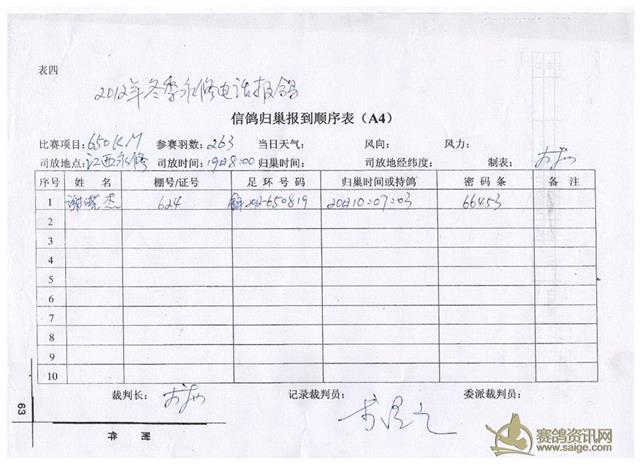 表四
2012年冬季永修电话报鸽
信鸽归巢报到顺序表（A4）
比赛项目：650KM 参赛羽数：263 当日天气： 风向： 风力：
司放地点：江西永修 司放时间：19日8:00 归巢时间： 司放地经纬度： 制表：
序号 姓 名 棚号/证号 足 环 号 码 归巢时间或持鸽 密 码 条 备 注
1 谢晓杰 624 2012-650819 20日10:07:03 66453
2
3
4
5
6
7
8
9
10
裁判长： 记录裁判员： 委派裁判员：
63
附 件
赛鸽资讯网
www.saige.com